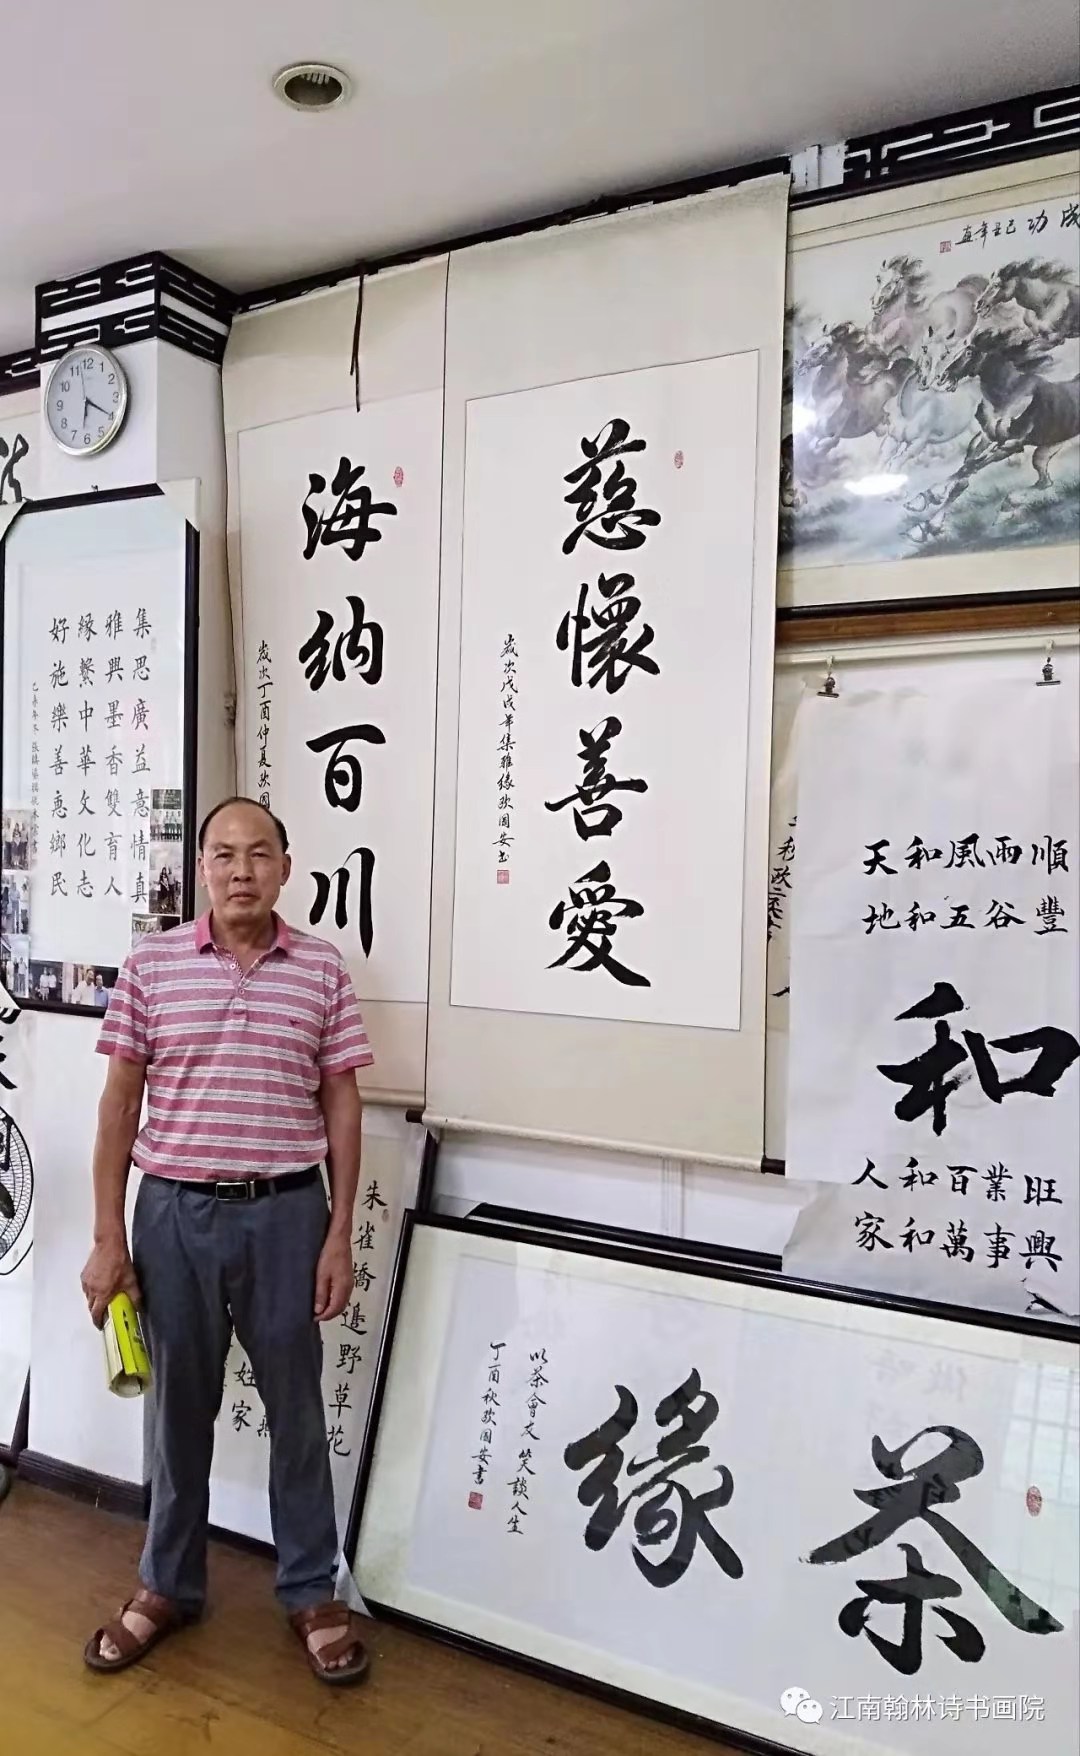 成功 己丑年直
慈懷善愛
歲次戊戌年集雅緣歐國安書
海納百川
歲次丁酉仲夏歐國
集思廣益意情真
雅興墨香雙育人
緣繫中華文化志
好施樂善惠鄉民
順豐
雨谷
風五
和和
天地
和
旺興
業事
百萬
和和
人家
朱雀橋邊野草花
姓家
茶緣
以茶會友 笑談人生
丁酉秋歐國安書
12 1 2 3 4 5 6 7 8 9 10 11
江南翰林诗书画院